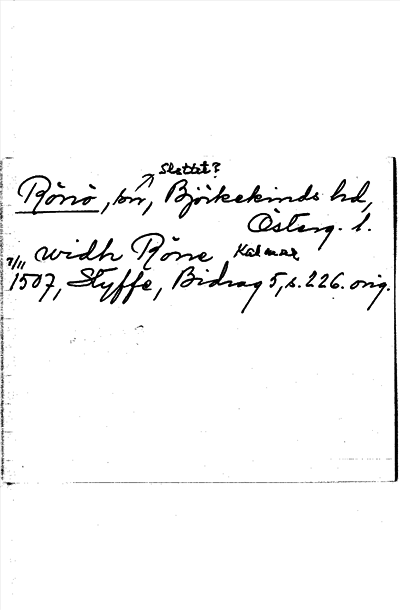 Slottet?
Rönö, sn, Björkekinds hd,
Österg. l.
widh Röne Kalmar
7/11 1507, Styffe, Bidrag 5, s. 226. orig.